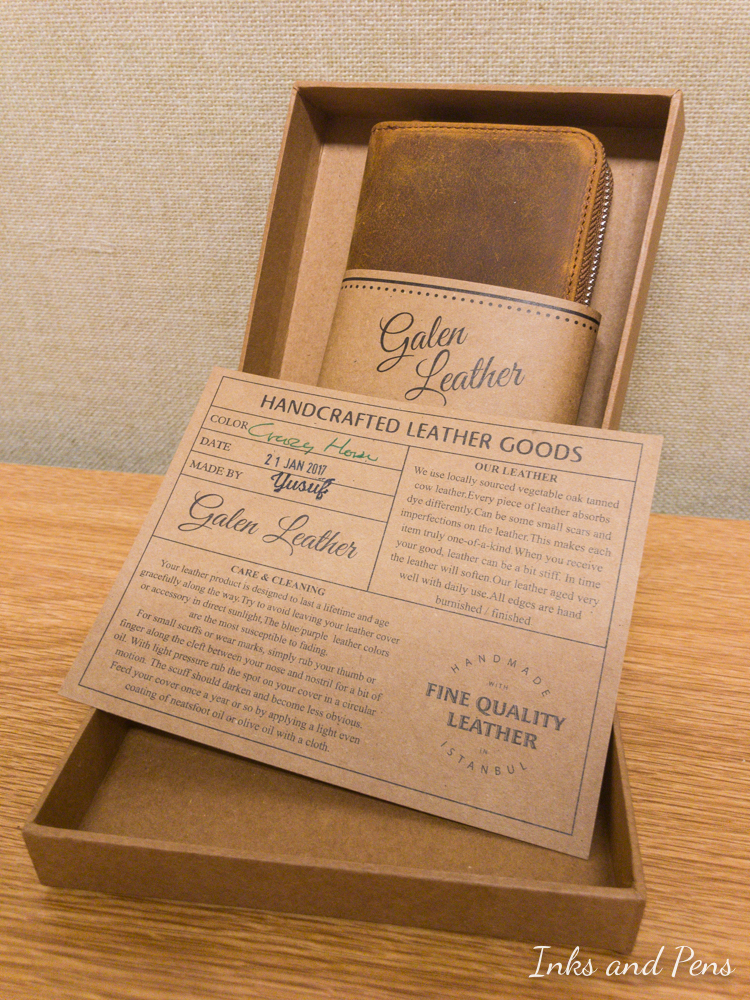 Galen
Leather
HANDCRAFTED LEATHER GOODS
COLOR Crazy Horse
DATE 21 JAN 2017
MADE BY Yusuf
Galen Leather
OUR LEATHER
We use locally sourced vegetable oak tanned
cow leather.Every piece of leather absorbs
dye differently.Can be some small scars and
imperfections on the leather.This makes each
item truly one-of-a-kind.When you receive
your good, leather can be a bit stiff. In time
the leather will soften.Our leather aged very
well with daily use.All edges are hand
burnished / finished
CARE & CLEANING
Your leather product is designed to last a lifetime and age
gracefully along the way.Try to avoid leaving your leather cover
or accessory in direct sunlight.The blue/purple leather colors
are the most susceptible to fading.
For small scuffs or wear marks, simply rub your thumb or
finger along the cleft between your nose and nostril for a bit of
oil. With light pressure rub the spot on your cover in a circular
motion. The scuff should darken and become less obvious.
Feed your cover once a year or so by applying a light even
coating of neatsfoot oil or olive oil with a cloth.
HANDMADE
WITH
FINE QUALITY
LEATHER
IN
ISTANBUL
Inks and Pens